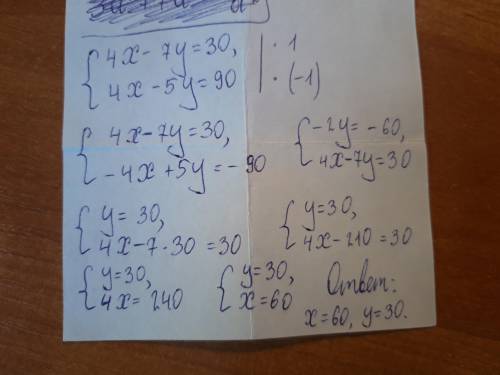 4x - 7y = 30, | · 1
4x - 5y = 90 | · (-1)
4x - 7y = 30,
-4x + 5y = -90
-2y = -60,
4x - 7y = 30
y = 30,
4x - 7 · 30 = 30
y = 30,
4x - 210 = 30
y = 30,
4x = 240
y = 30,
x = 60
Ответ:
x = 60, y = 30.